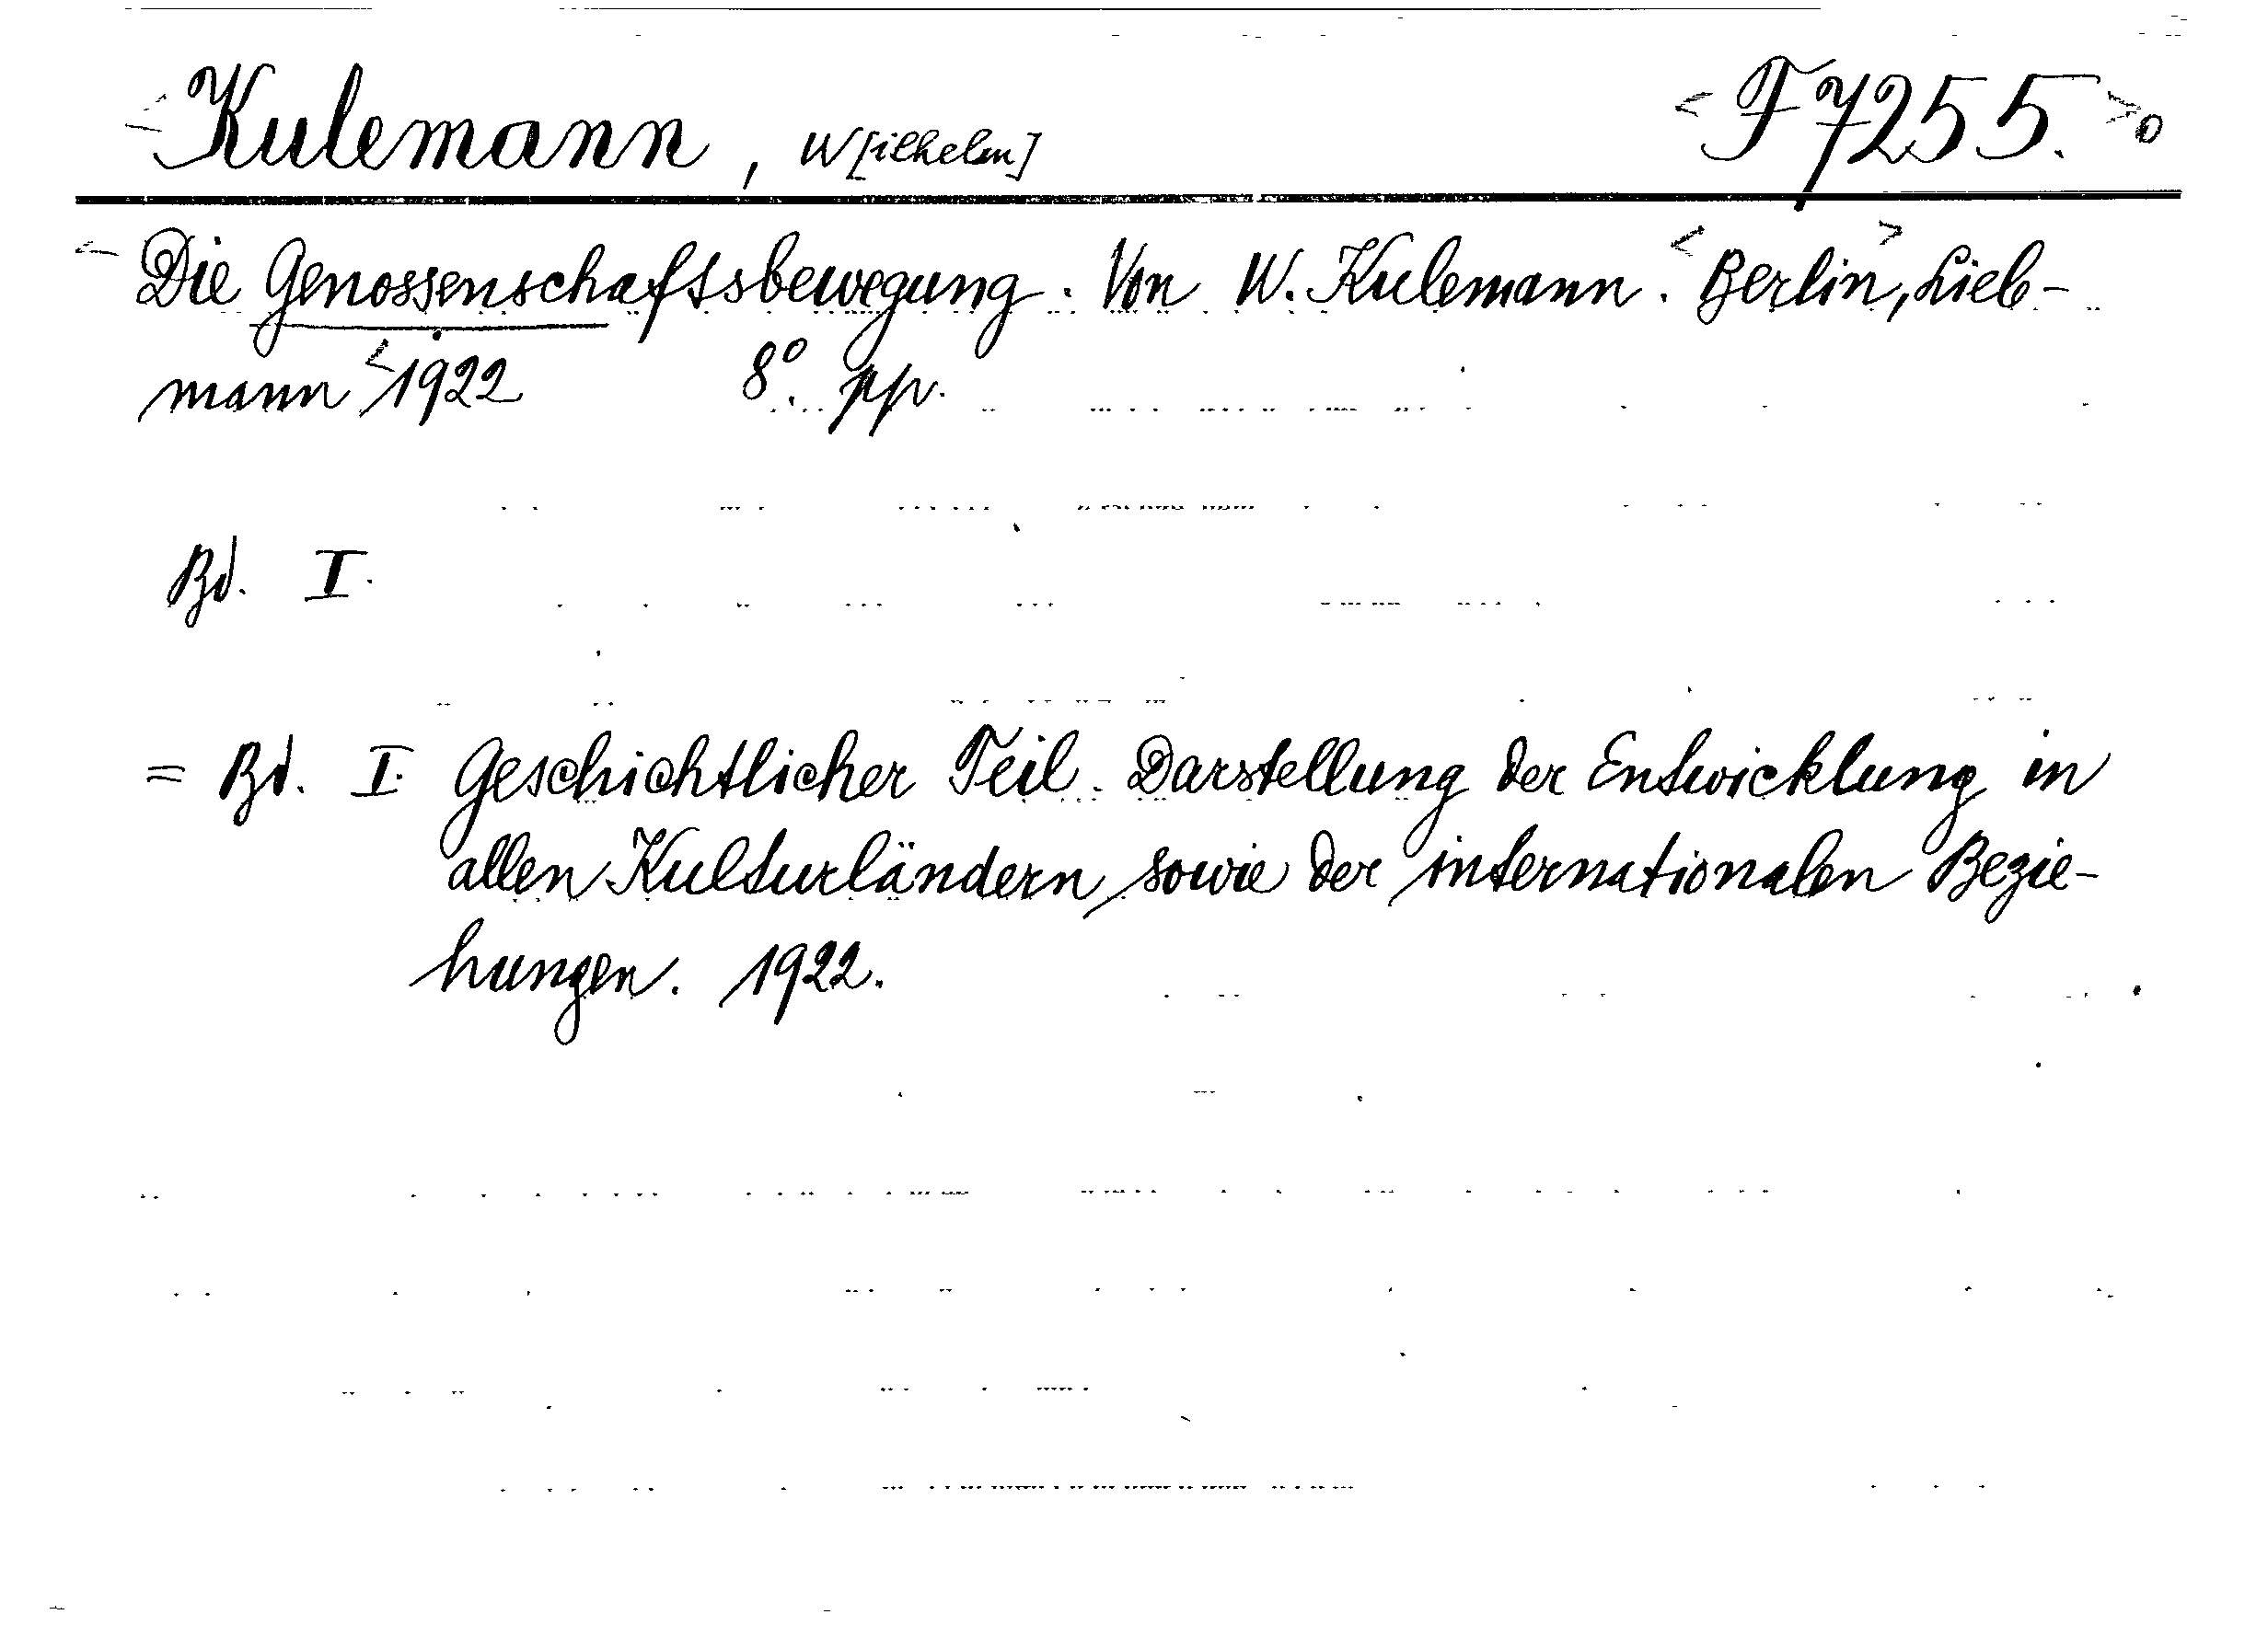 Kulemann, W[ilhelm] < F 7255. >o
Die Genossenschaftsbewegung. Von W. Kulemann. <Berlin>, Lieb-
mann <1922 8°. pp.
Bd. I.
= Bd. I. Geschichtlicher Teil. Darstellung der Entwicklung in
allen Kulturländern, sowie der internationalen Bezie-
hungen. 1922.